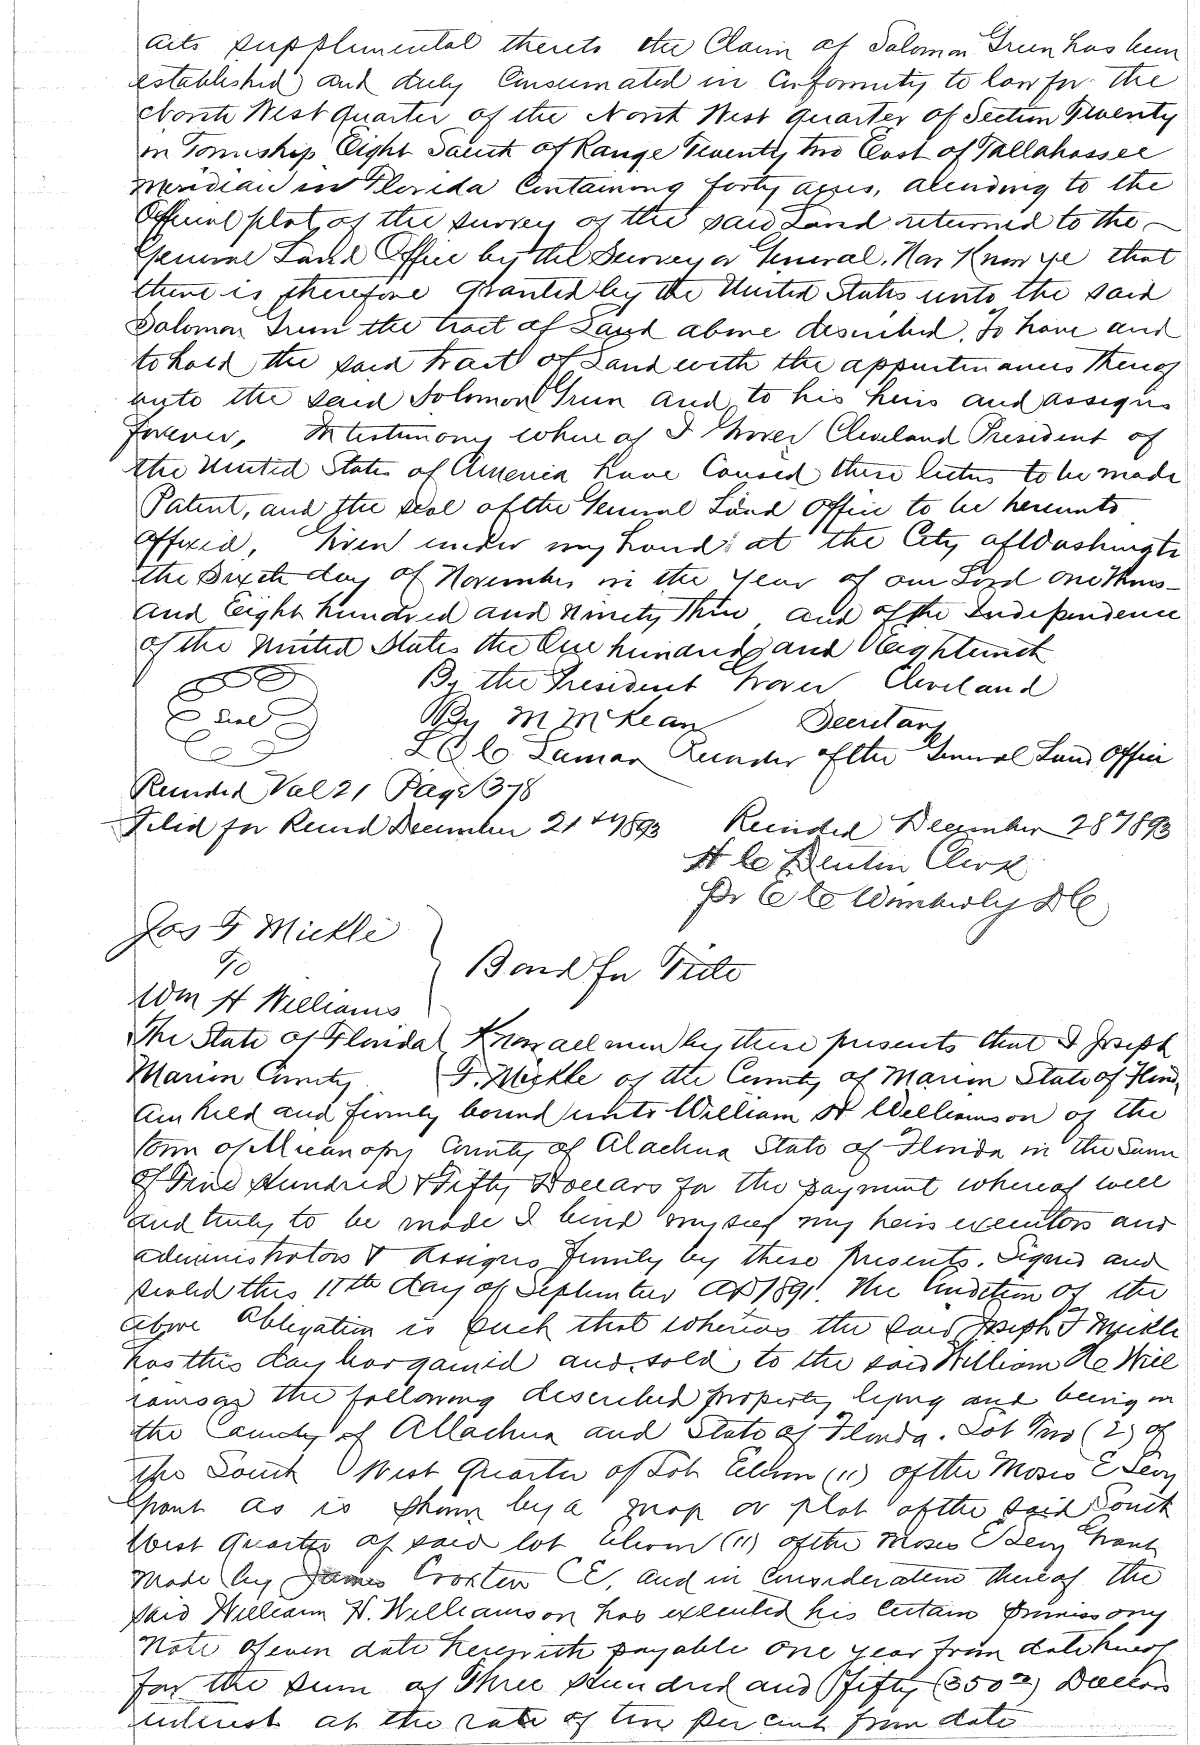 acts supplemental thereto the Claim of Solomon Green has been
established and duly Consumated in Conformity to law for the
North West quarter of the North West quarter of Section Twenty
in Township Eight South of Range Twenty two East of Tallahassee
Meridian in Florida Containing forty acres, according to the
Official plat of the survey of the said Land returned to the
General Land Office by the Surveyor General. Now Know ye that
there is therefore granted by the United States unto the said
Solomon Green the tract of Land above described. To have and
to hold the said tract of Land with the appurtenances thereof
unto the said Solomon Green and to his heirs and assigns
forever. In testimony whereof I Grover Cleveland President of
the United States of America have Caused these letters to be made
Patent, and the seal of the General Land Office to be hereunto
affixed, Given under my hand at the City of Washingto
the Sixth day of November in the Year of our Lord one Thous-
and Eight hundred and Ninety Three and of the Independence
of the United States the One hundred and Eighteenth
By the President Grover Cleveland
Seal By M McKean Secretary
L Q C Lamar Recorder of the General Land Office
Recorded Vol 21 Page 378
Filed for Record December 21st 1893 Recorded December 28 1893
H C Denton Clerk
Pr C C Wimberly DC
Jos F Mickle
To
Wm H Williams
Bond for Title
The State of Florida Know all men by these presents that I Joseph
Marion County F. Mickle of the County of Marion State of Florid
am held and firmly bound unto William H Williamson of the
town of Micanopy County of Alachua State of Florida in the Sum
of Five Hundred & Fifty Dollars for the payment whereof well
and truly to be made I bind myself my heirs executors and
administrators & Assigns firmly by these presents. Signed and
sealed this 11th day of September AD 1891. The Condition of the
above Obligation is such that whereas the said Joseph F Mickle
has this day bargained and sold to the said William H Will
iamson the following described property lying and being in
the County of Allachua and State of Florida. Lot Two (2) of
the South West Quarter of Lot Eleven (11) of the Moses E Levy
Grant as is shown by a map or plat of the said South
West Quarter of said lot Eleven (11) of the Moses E Levy Grant
Made by James Croxton CE. and in Consideration thereof the
said William H. Williamson has executed his Certain promissory
Note of even date herewith payable one year from date hereof
for the sum of Three Hundred and fifty (350 00) Dollars
interest at the rate of ten per cent from date